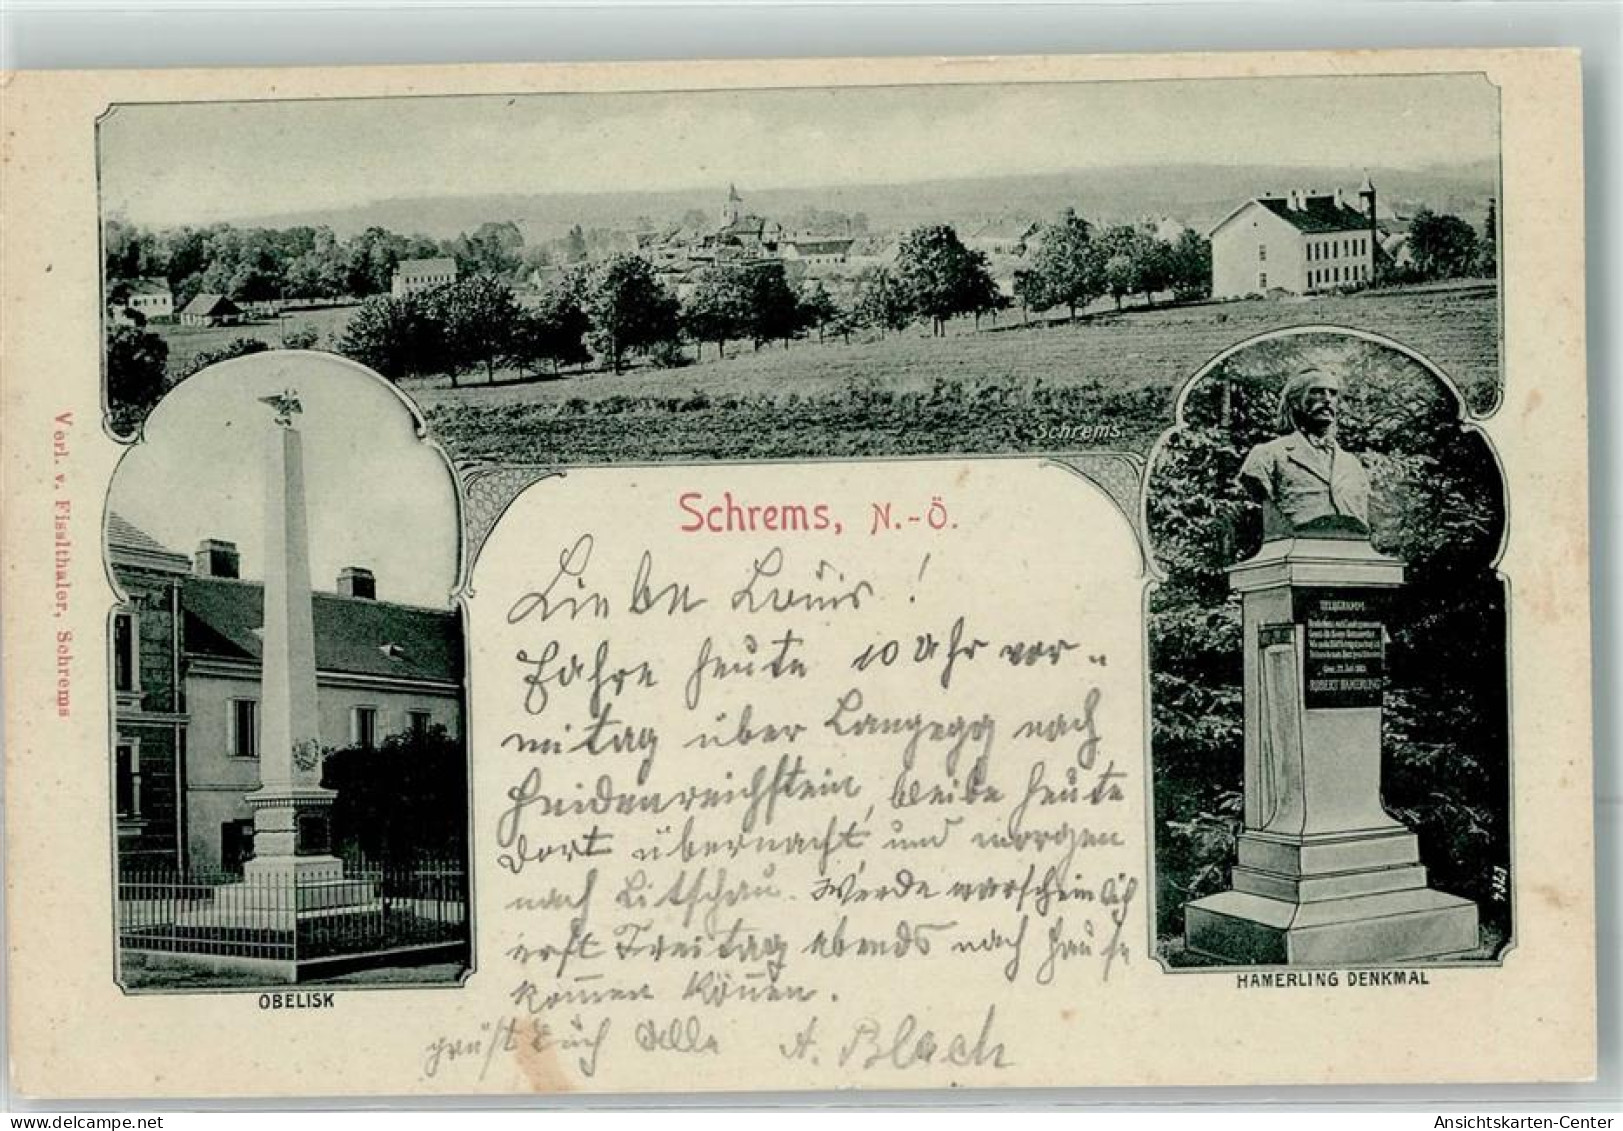 Schrems.
Schrems, N.-Ö.
Lieben Louis!
Fahre heute 10 Uhr vor-
mitag über Langegg nach
Heidenreichstein, bleibe heute
dort übernacht, und morgen
nach Litschau. Werde warscheinlich
erst Freitag abends nach Hause
kommen können.
grüst Euch Alle A. Blach
OBELISK
TELEGRAMM
ROBERT HAMERLING
HAMERLING DENKMAL
Verl. v. Fisslthaler, Schrems
Ansichtskarten-Center